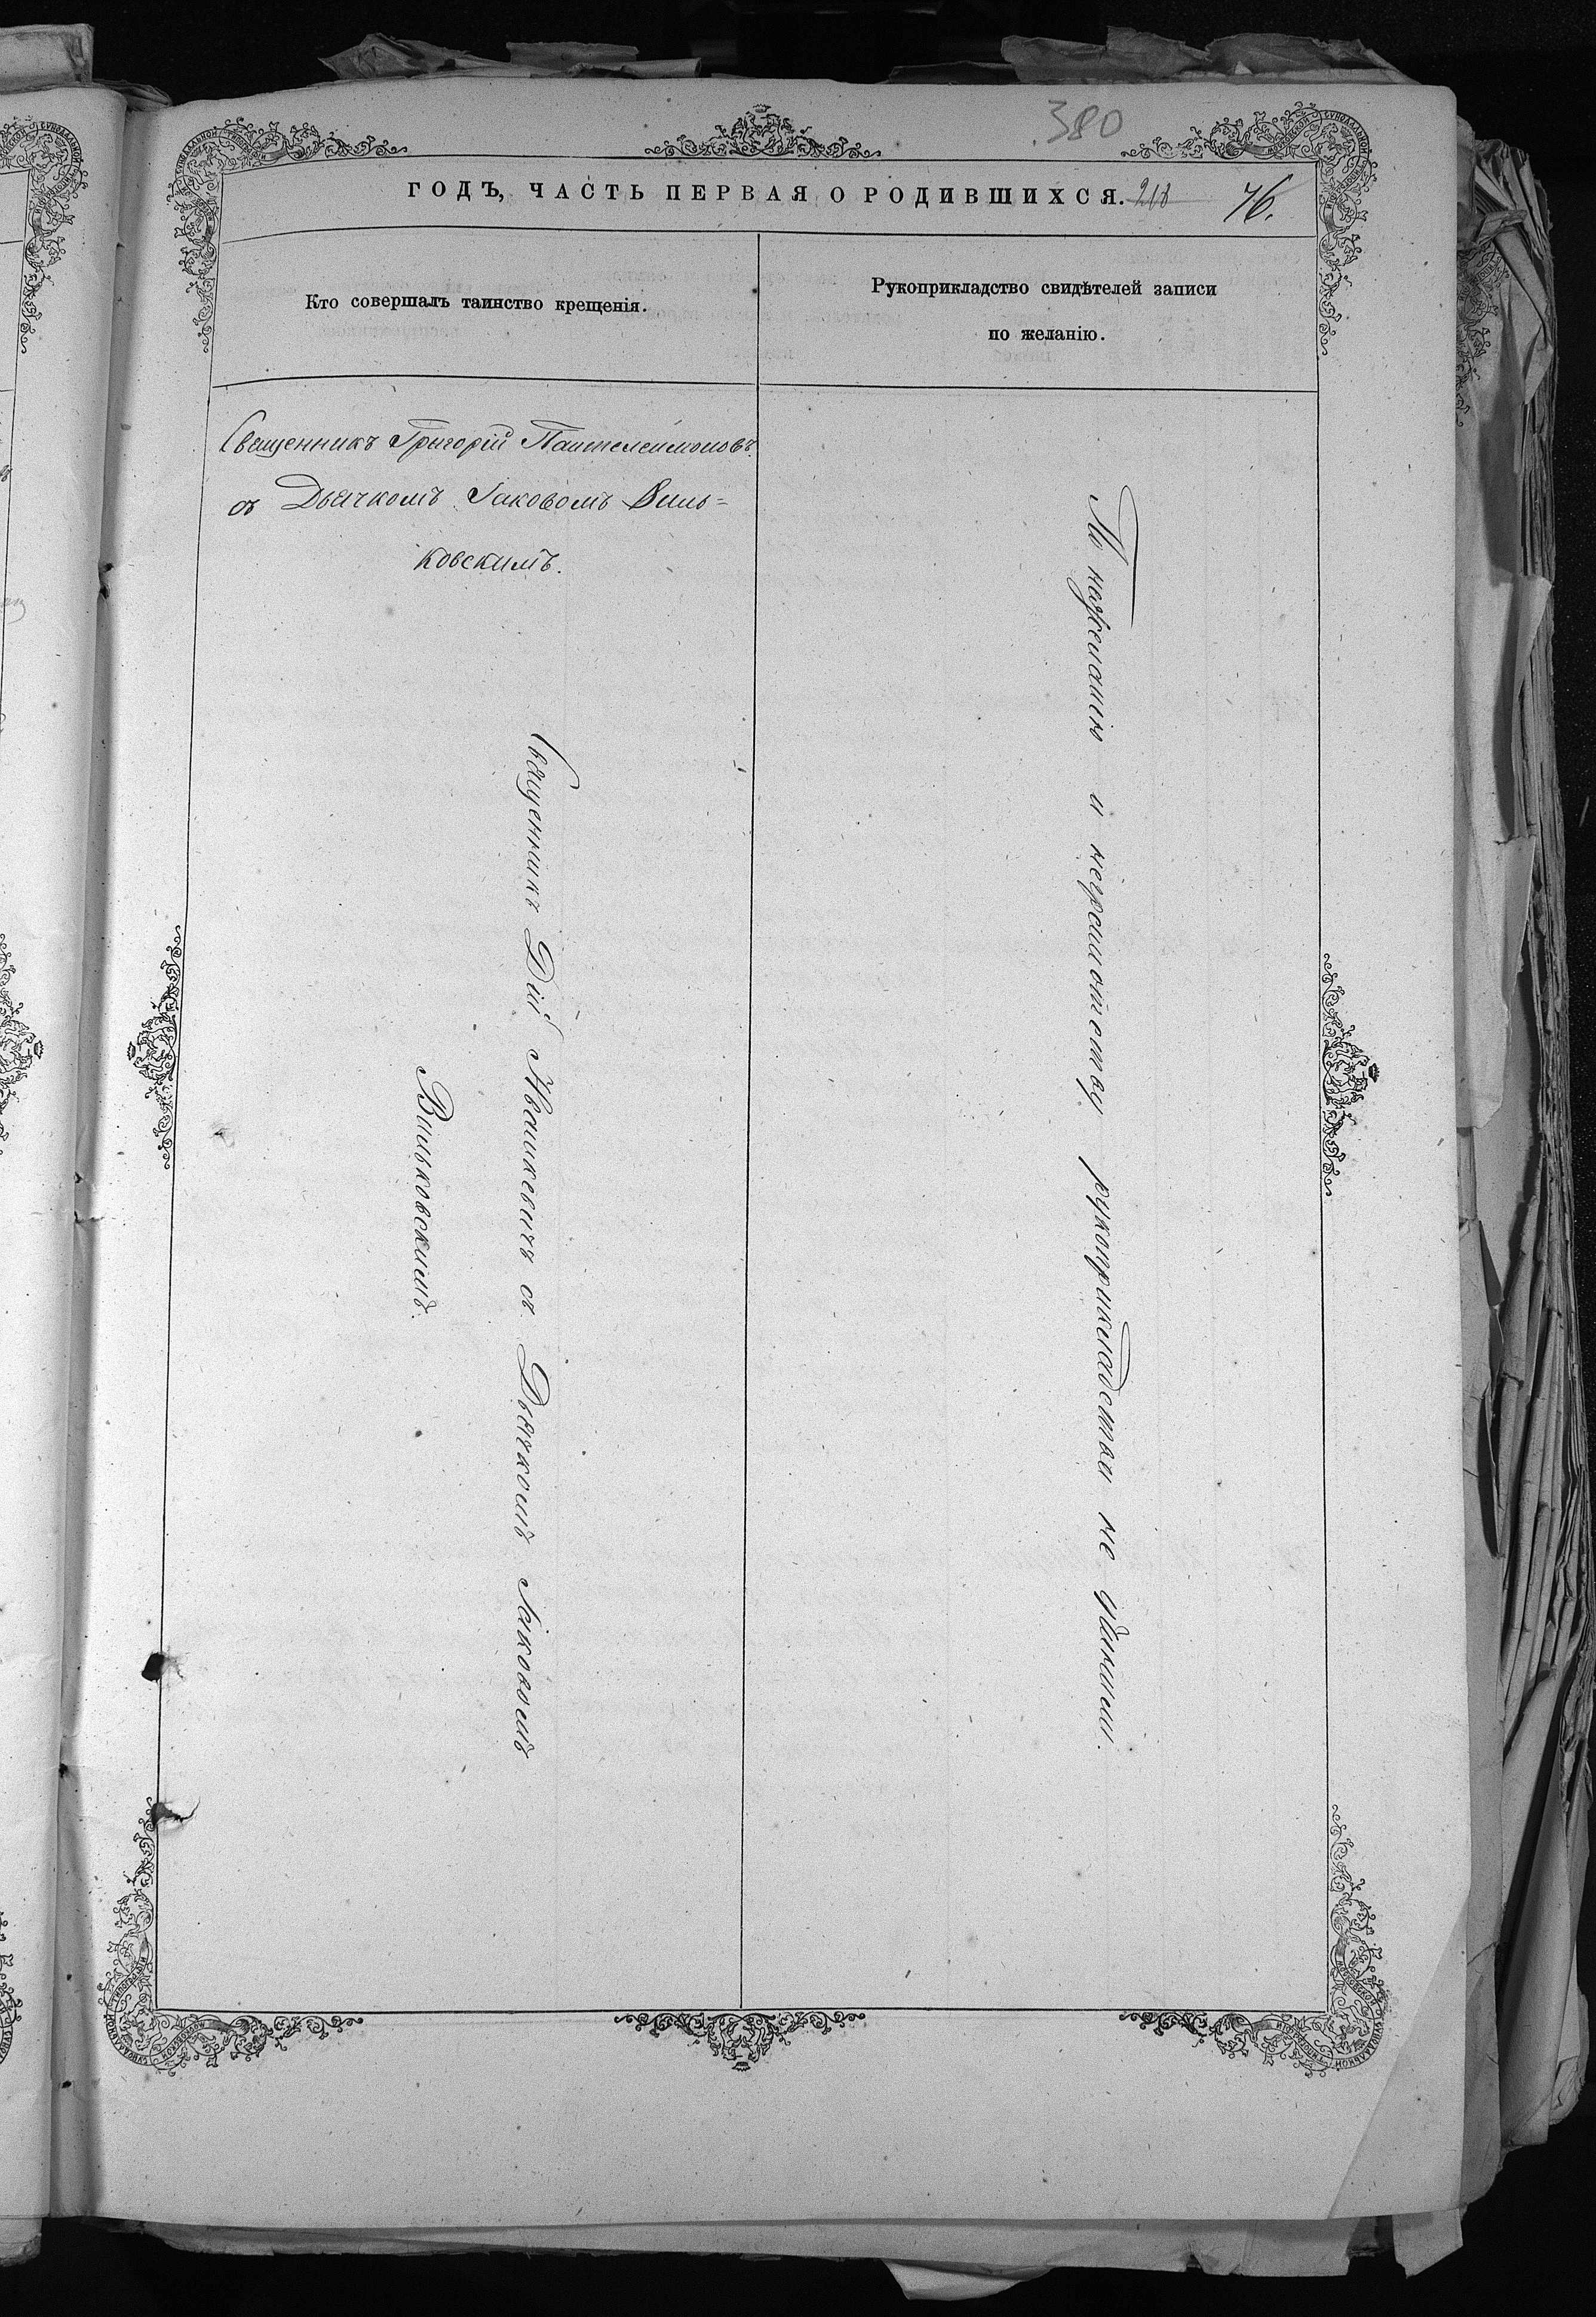 380
ГОДЪ, ЧАСТЬ ПЕРВАЯ О РОДИВШИХСЯ. 218 76.
Кто совершалъ таинство крещенія.
Рукоприкладство свидѣтелей записи
по желанію.
Священникъ Григорій Пантелеимоновъ
съ Дьячкомъ Іаковомъ Виль=
ковскимъ.
Священникъ Дій Ивашкевичъ съ Дьячкомъ Іаковомъ
Вильковскимъ.
По нежеланію и неграмотству рукоприкладства не учинили.